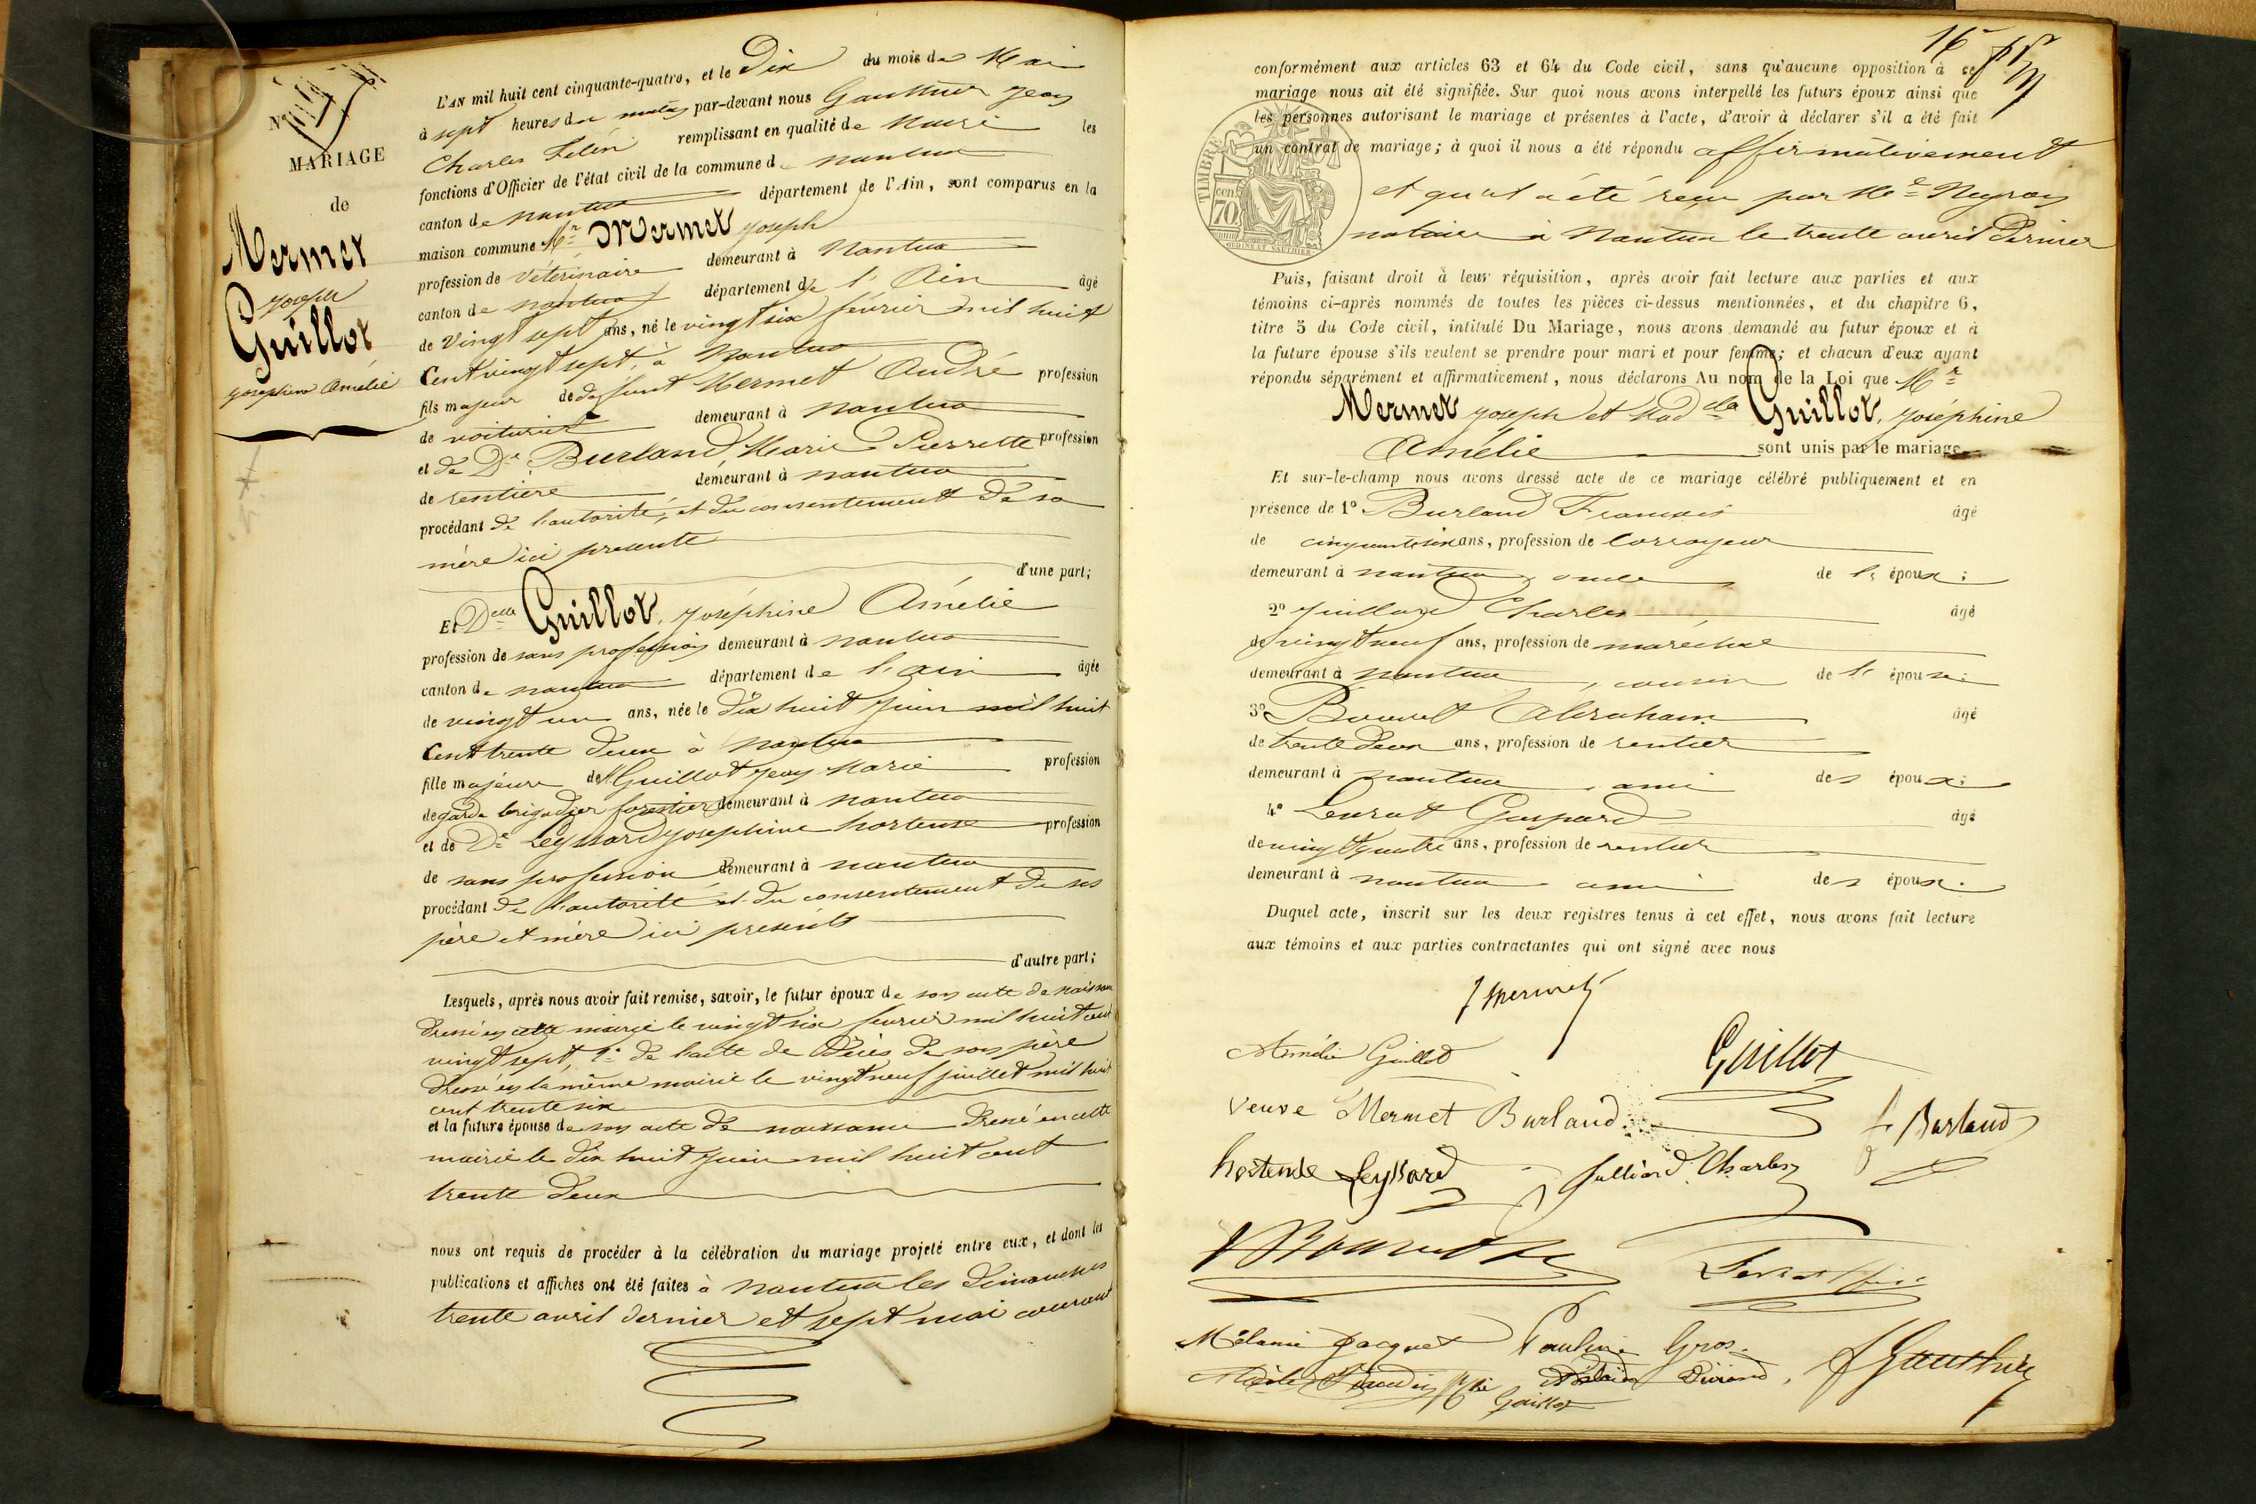 N°
MARIAGE
de
Mermet
Joseph
Guillot
Joséphine Amélie
L'AN mil huit cent cinquante-quatre, et le Dix du mois de Mai
à sept heures du matin par-devant nous Gauthier Jean
Charles Félix remplissant en qualité de Maire les
fonctions d'Officier de l'état civil de la commune de Nantua
canton de Nantua département de l'Ain, sont comparus en la
maison commune Mr Mermet Joseph
profession de Vétérinaire demeurant à Nantua
canton de Nantua département de l'Ain âgé
de Vingt sept ans, né le vingt six février mil huit
Cent vingt sept, à Nantua
fils majeur de defunt Mermet André profession
de voiturier demeurant à Nantua
et de De Burland Marie Pierrette profession
de rentiere demeurant à Nantua
procédant de l'autorité, et du consentement de sa
mère ici presente
d'une part;
Et Delle Guillot, Joséphine Amélie
profession de sans profession demeurant à Nantua
canton de Nantua département de l'Ain âgée
de vingt un ans, née le Dix huit Juin mil huit
Cent trente deux à Nantua
fille majeure de Guillot Jean Marie profession
de garde brigadier forestier demeurant à Nantua
et de De Leyssard Josephine hortense profession
de sans profession demeurant à Nantua
procédant de l'autorité et du consentement de ses
père et mère ici présents
d'autre part;
Lesquels, après nous avoir fait remise, savoir, le futur époux de son acte de naissance
dressé en cette mairie le vingt six fevrier mil huit cent
vingt sept, de l'acte de décès de son père
dressé en la même mairie le vingt neuf juillet mil huit
cent trente six
et la future épouse de son acte de naissance dressé en cette
mairie le dix huit Juin mil huit cent
trente deux
nous ont requis de procéder à la célébration du mariage projeté entre eux, et dont les
publications et affiches ont été faites à Nantua les Dimanches
trente avril dernier et sept mai courant
16
conformément aux articles 63 et 64 du Code civil, sans qu'aucune opposition à ce
mariage nous ait été signifiée. Sur quoi nous avons interpellé les futurs époux ainsi que
les personnes autorisant le mariage et présentes à l'acte, d'avoir à déclarer s'il a été fait
un contrat de mariage; à quoi il nous a été répondu affirmativement
et qu'il a été reçu par Me Neyron
notaire à Nantua le trente avril dernier
TIMBRE
70
Puis, faisant droit à leur réquisition, après avoir fait lecture aux parties et aux
témoins ci-après nommés de toutes les pièces ci-dessus mentionnées, et du chapitre 6,
titre 5 du Code civil, intitulé Du Mariage, nous avons demandé au futur époux et à
la future épouse s'ils veulent se prendre pour mari et pour femme; et chacun d'eux ayant
répondu séparément et affirmativement, nous déclarons Au nom de la Loi que Mr
Mermet Joseph et Mad elle Guillot, Joséphine
Amélie sont unis par le mariage.
Et sur-le-champ nous avons dressé acte de ce mariage célébré publiquement et en
présence de 1° Burland François âgé
de cinquante six ans, profession de Corroyeur
demeurant à Nantua, oncle de l' époux;
2° Juillard Charles âgé
de vingt neuf ans, profession de maréchal
demeurant à Nantua, cousin de l' épouse;
3° Bouvet Abraham âgé
de trente deux ans, profession de rentier
demeurant à Nantua, ami des époux;
4° Levrat Gaspard âgé
de vingt quatre ans, profession de rentier
demeurant à Nantua ami des époux.
Duquel acte, inscrit sur les deux registres tenus à cet effet, nous avons fait lecture
aux témoins et aux parties contractantes qui ont signé avec nous
J Mermet
Amélie Guillot Guillot
Veuve Mermet Burland f Burland
hortense Leyssard Julliard Charles
Bouvet
Mélanie Jacquet Pauline Gros
Guillot
f Gauthier